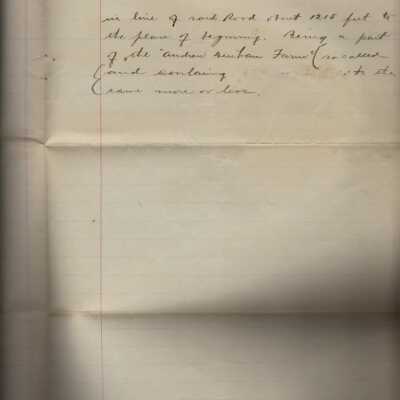 in line of said Road about 1215 feet to
the place of beginning. Being a part
of the "Andrew Farm" (so called
(and containing to the
(same more or less.